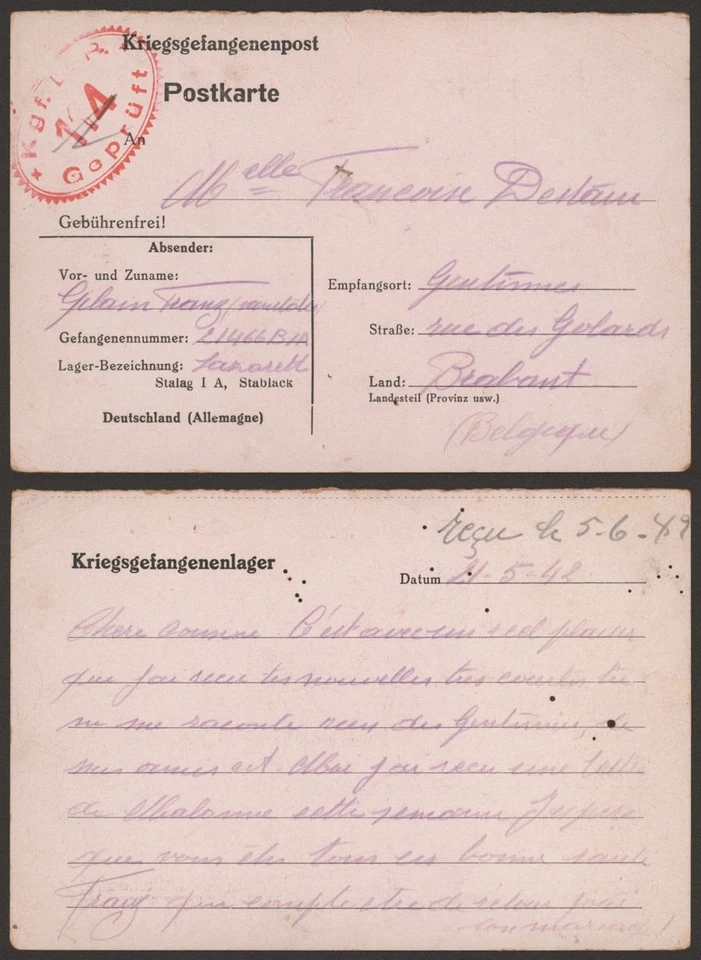 Kriegsgefangenenpost
Postkarte
Kgf. I. P.
1/A
Geprüft
An
Melle Francoise
Gebührenfrei!
Absender:
Vor- und Zuname:
Franz
Gefangenennummer: 21466 B IA
Lager-Bezeichnung: Lazarett
Stalag I A, Stablack
Deutschland (Allemagne)
Empfangsort: Gentinnes
Straße: rue des
Land: Brabant
Landesteil (Provinz usw.)
(Belgique)
reçu le 5-6-42
Kriegsgefangenenlager
Datum 21-5-42
Chere C'est avec un reel plaisir
que j'ai recu tes nouvelles tres courtes tu
ne me raconte rien des Gentinnes, de
mes amies ect Moi j'ai recu une lettre
de cette semaine J'espere
que vous êtes tous en bonne santé
Franz qui compte etre de retour pour
ton mariage!